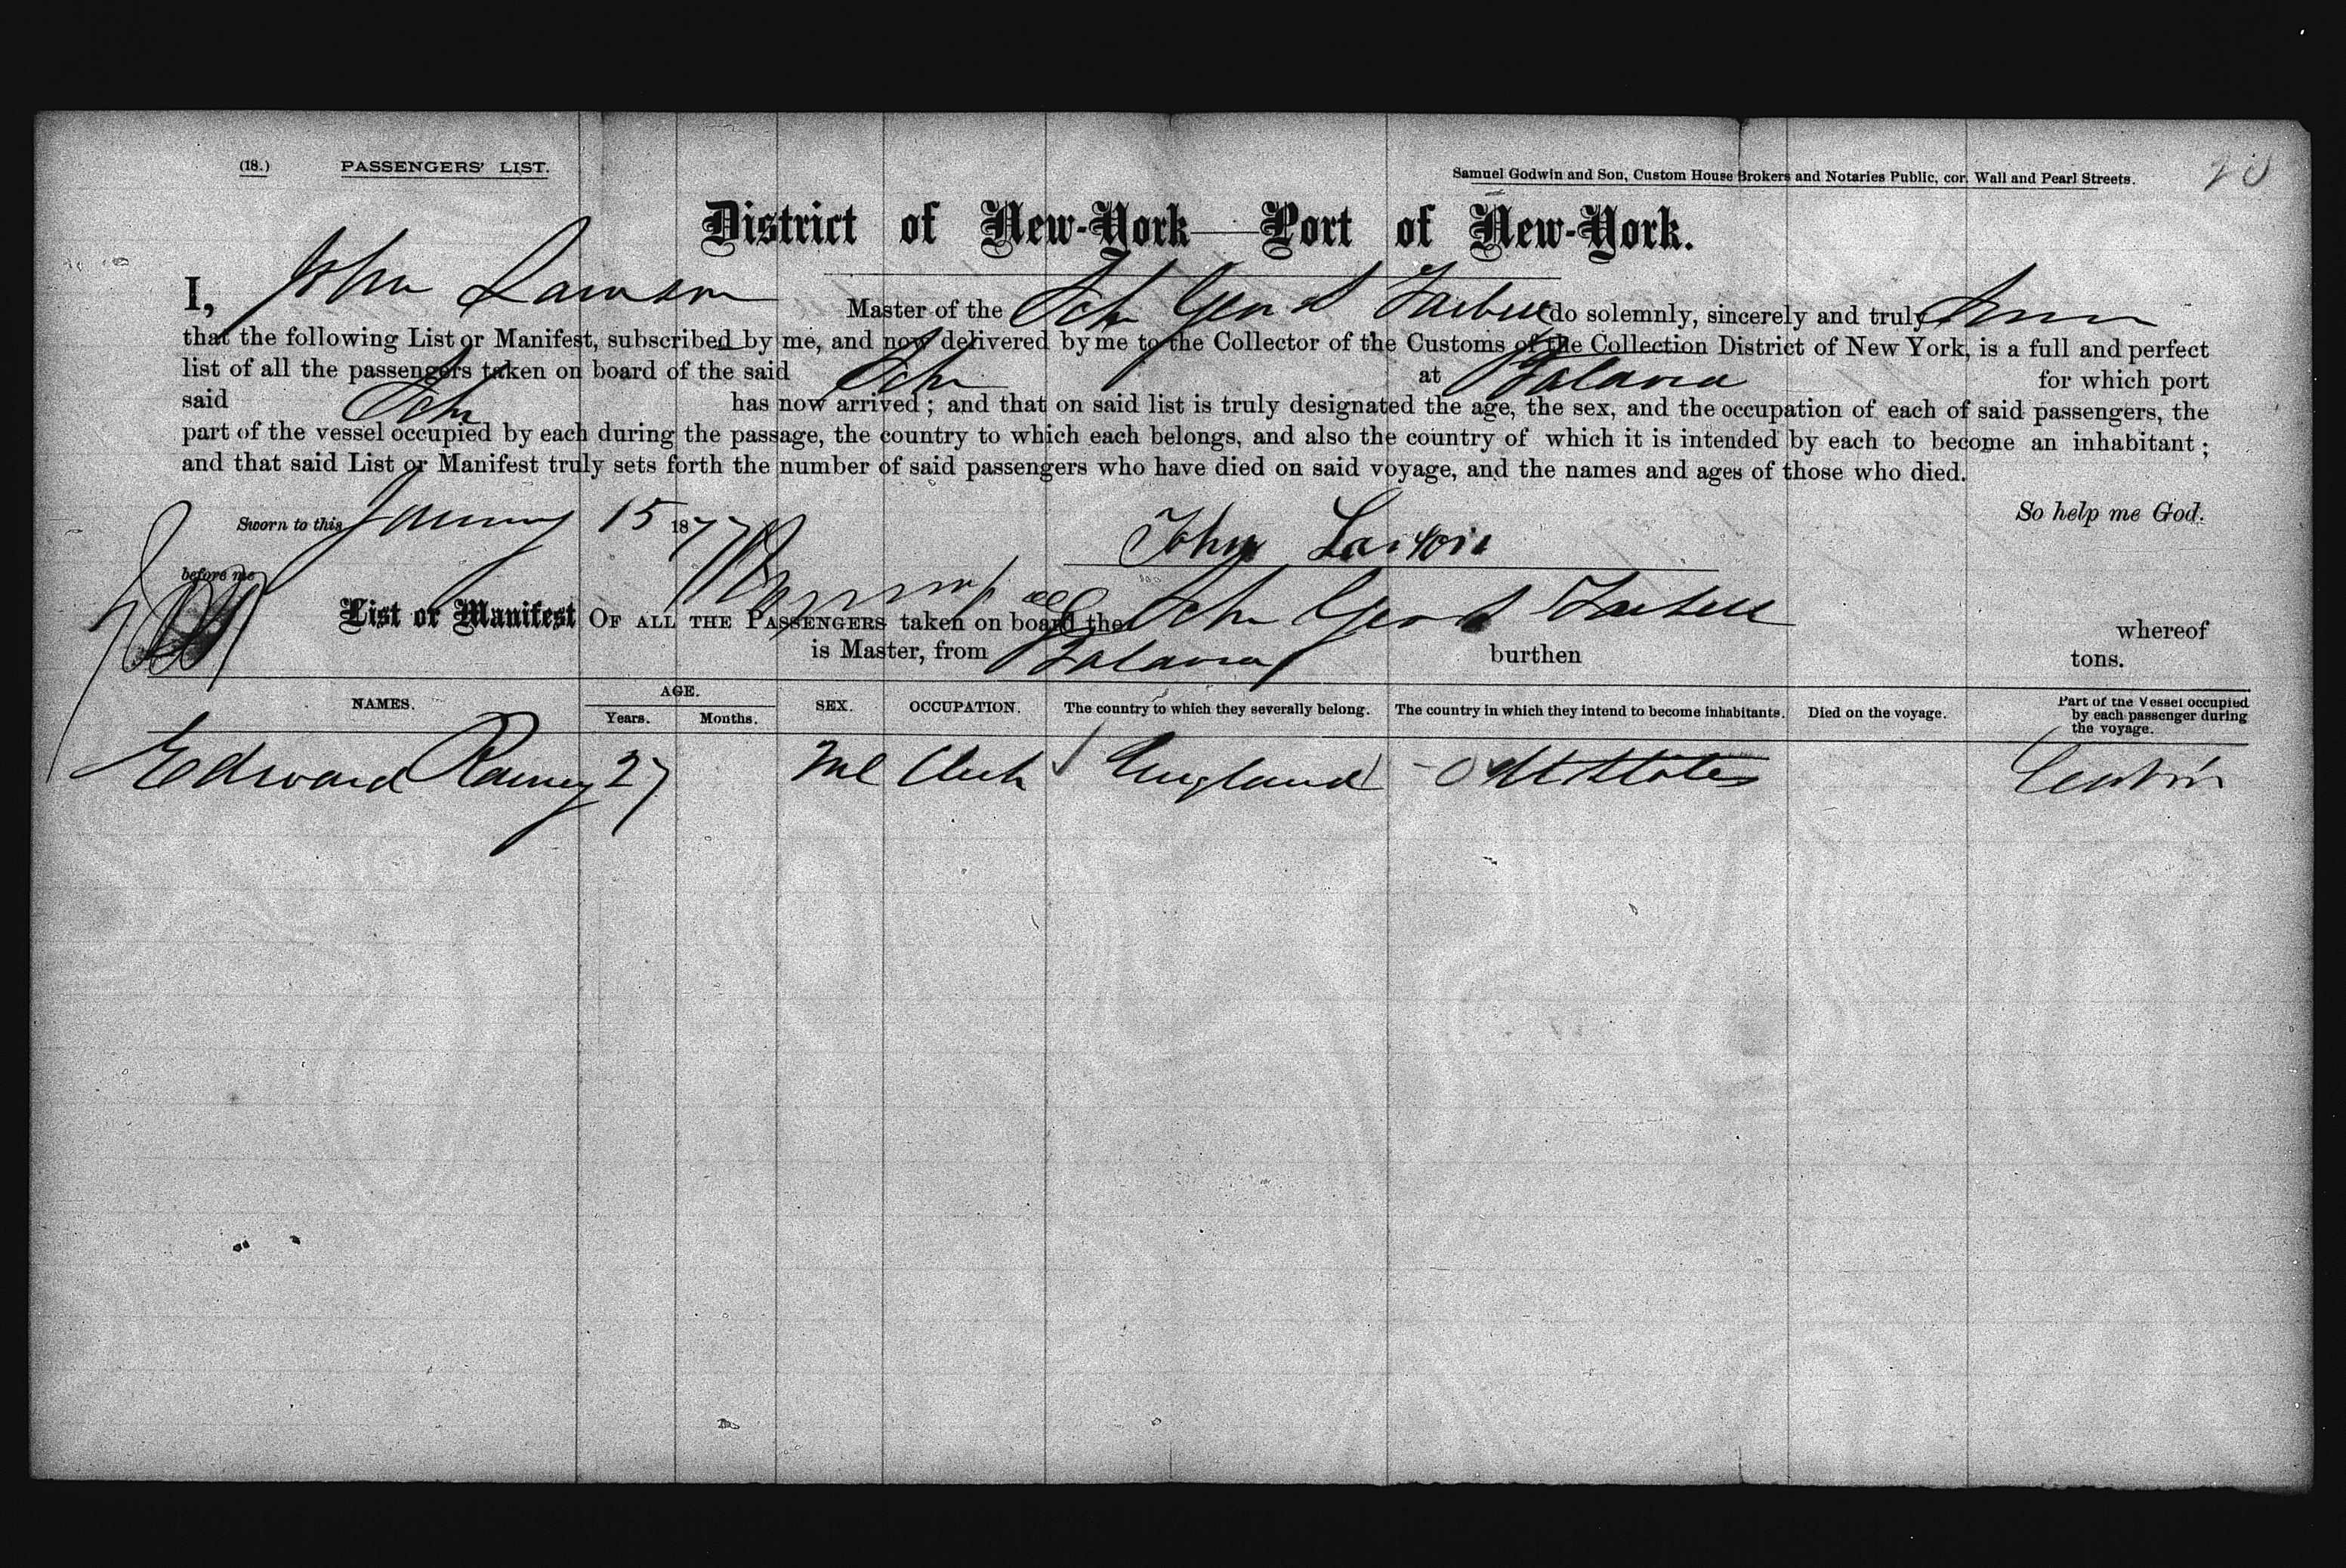 (18.) PASSENGERS' LIST. Samuel Godwin and Son, Custom House Brokers and Notaries Public, cor. Wall and Pearl Streets. 20
District of New-York—Port of New-York.
I, John Lawson Master of the Schr do solemnly, sincerely and truly Swear
that the following List or Manifest, subscribed by me, and now delivered by me to the Collector of the Customs of the Collection District of New York, is a full and perfect
list of all the passengers taken on board of the said Schr at for which port
said Schr has now arrived; and that on said list is truly designated the age, the sex, and the occupation of each of said passengers, the
part of the vessel occupied by each during the passage, the country to which each belongs, and also the country of which it is intended by each to become an inhabitant;
and that said List or Manifest truly sets forth the number of said passengers who have died on said voyage, and the names and ages of those who died.
So help me God.
Sworn to this January 15 1877
John Lawson
before me
List or Manifest OF ALL THE PASSENGERS taken on board the Schr whereof
is Master, from burthen tons.
NAMES. AGE. SEX. OCCUPATION. The country to which they severally belong. The country in which they intend to become inhabitants. Died on the voyage. Part of the Vessel occupied by each passenger during the voyage.
Years. Months.
Edward Rainey 27 Ml Clerk England U States Cabin